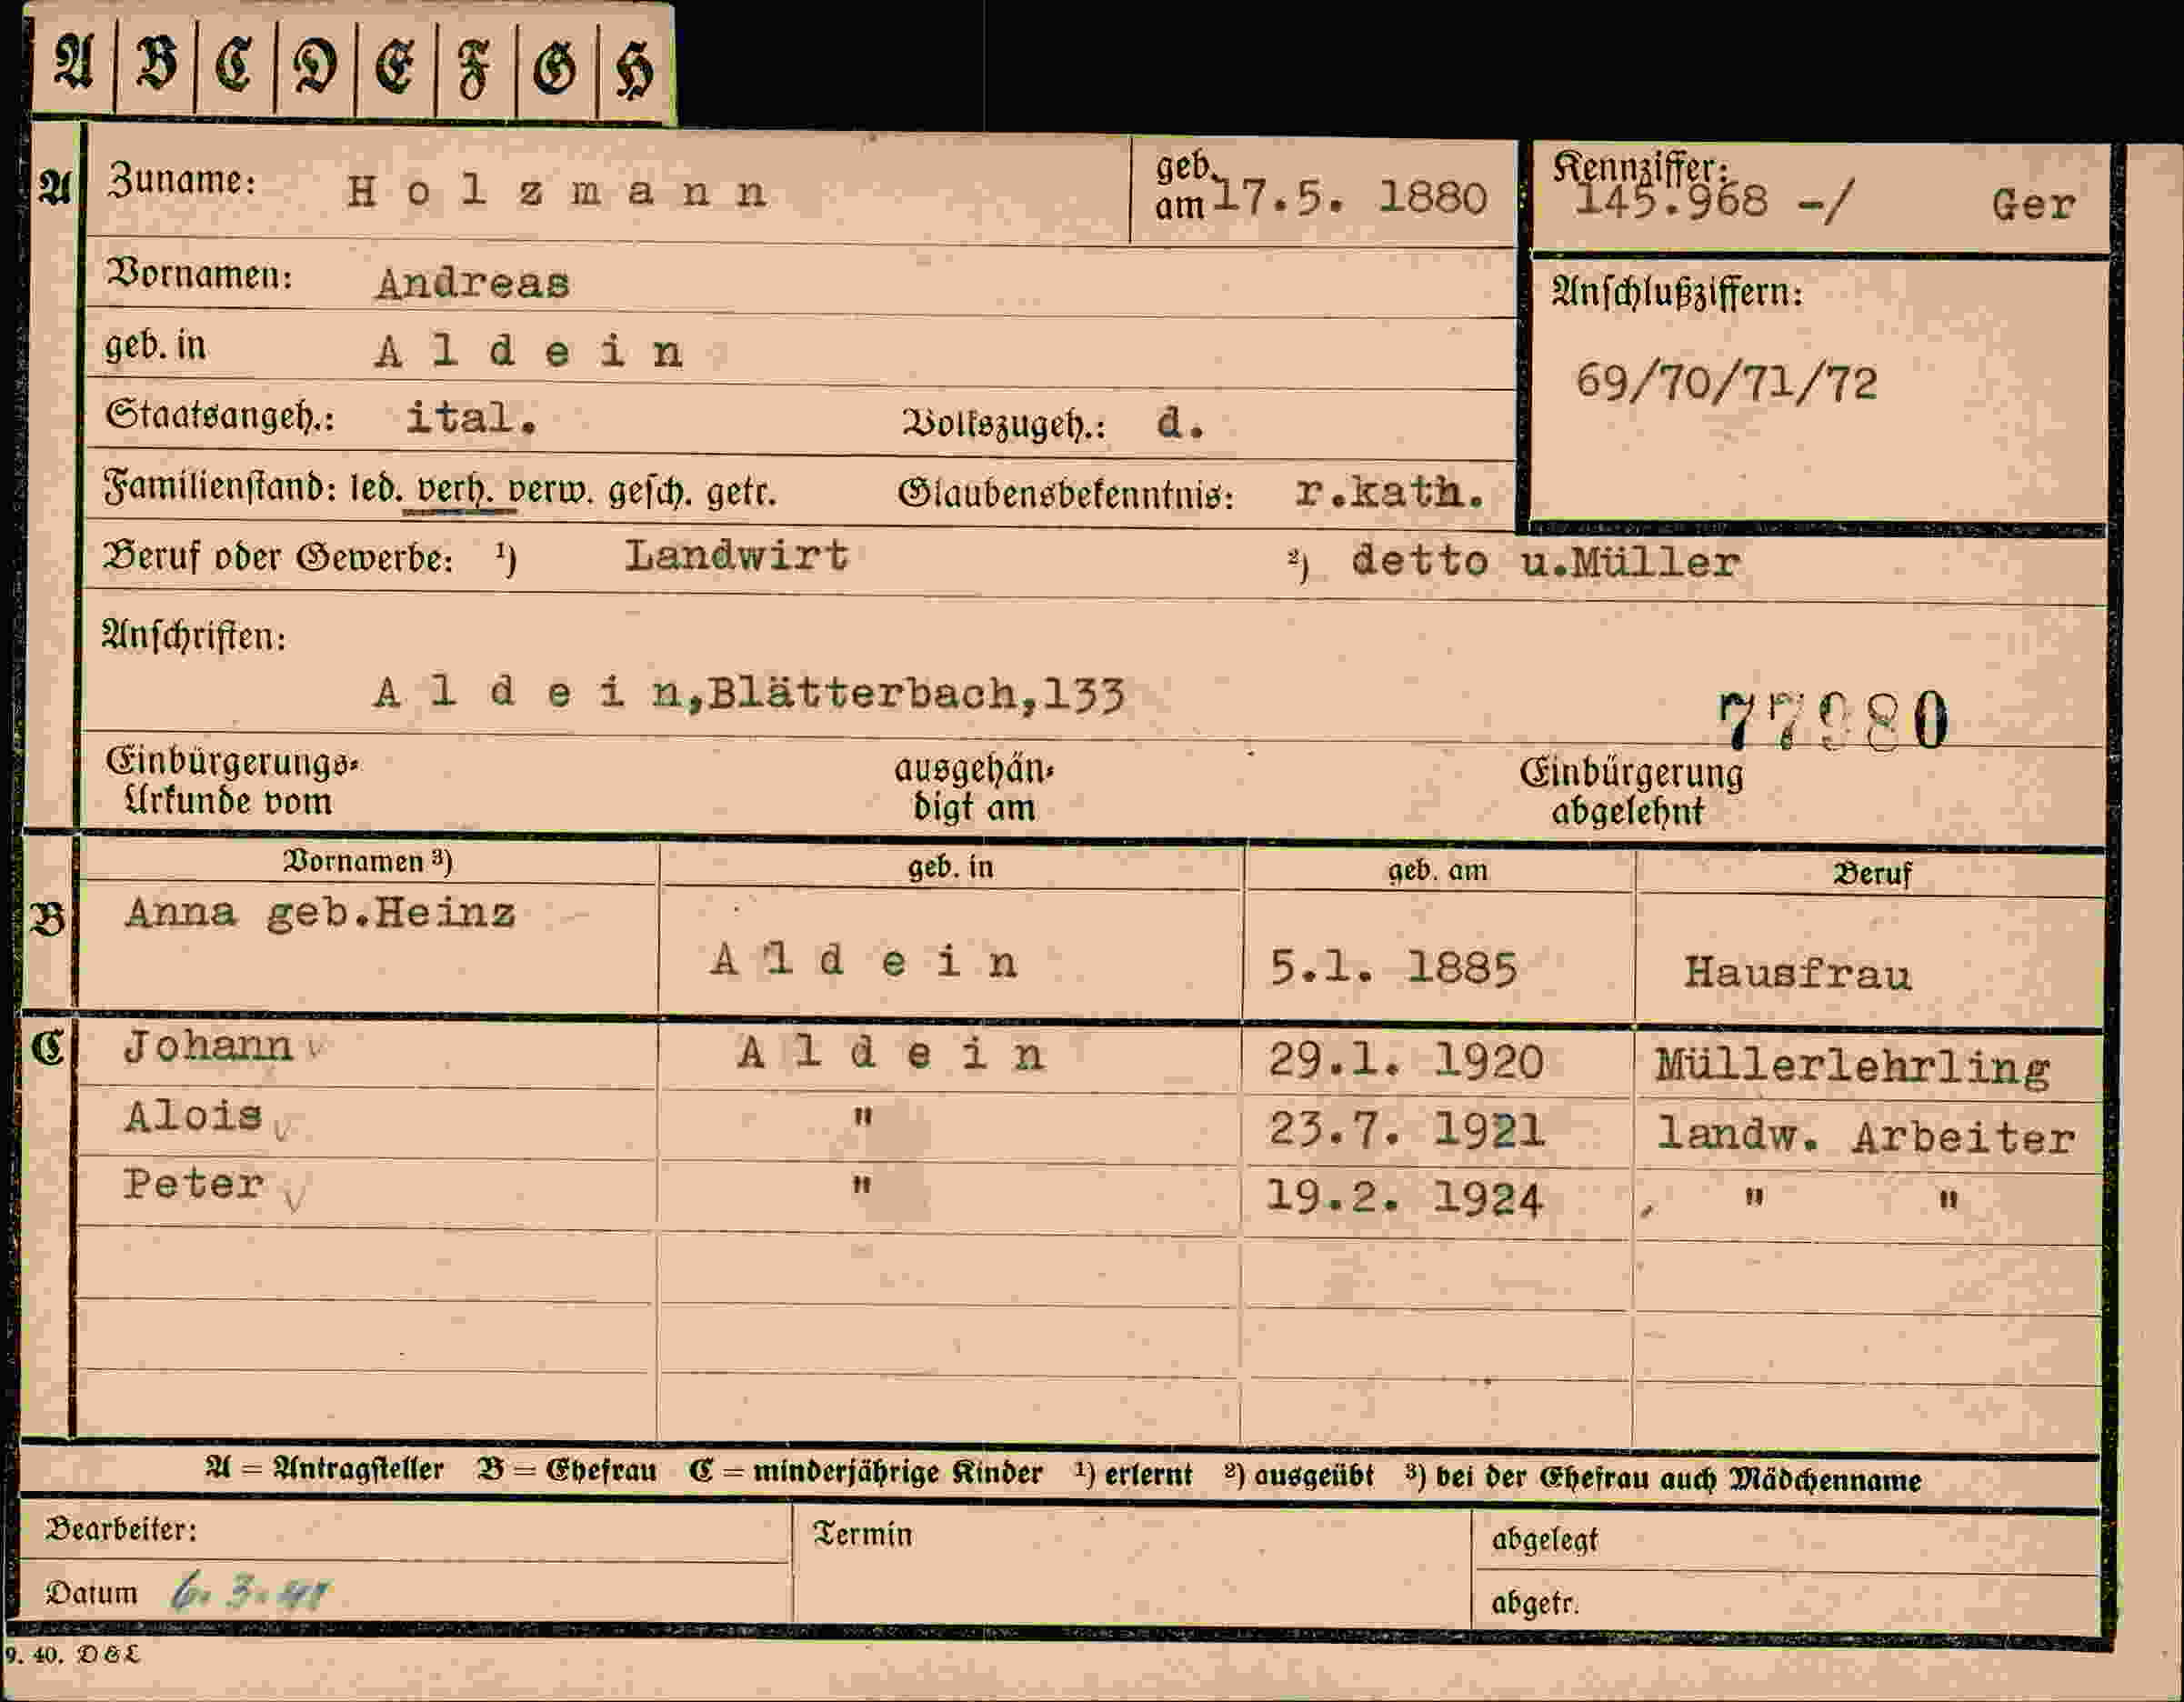 A B C D E F G H
A Zuname: Holzmann geb. am 17.5. 1880 Kennziffer: 145.968 -/ Ger
Vornamen: Andreas Anschlußziffern:
geb. in Aldein 69/70/71/72
Staatsangeh.: ital. Volkszugeh.: d.
Familienstand: led. verh. verw. gesch. getr. Glaubensbekenntnis: r.kath.
Beruf oder Gewerbe: ¹) Landwirt ²) detto u.Müller
Anschriften:
Aldein,Blätterbach,133 77980
Einbürgerungs- ausgehän- Einbürgerung
Urkunde vom digt am abgelehnt
Vornamen ³) geb. in geb. am Beruf
B Anna geb.Heinz
Aldein 5.1. 1885 Hausfrau
C Johann Aldein 29.1. 1920 Müllerlehrling
Alois " 23.7. 1921 landw. Arbeiter
Peter " 19.2. 1924 " "
A = Antragsteller B = Ehefrau C = minderjährige Kinder ¹) erlernt ²) ausgeübt ³) bei der Ehefrau auch Mädchenname
Bearbeiter: Termin abgelegt
Datum 6. 3. 41 abgetr.
9. 40. D&L